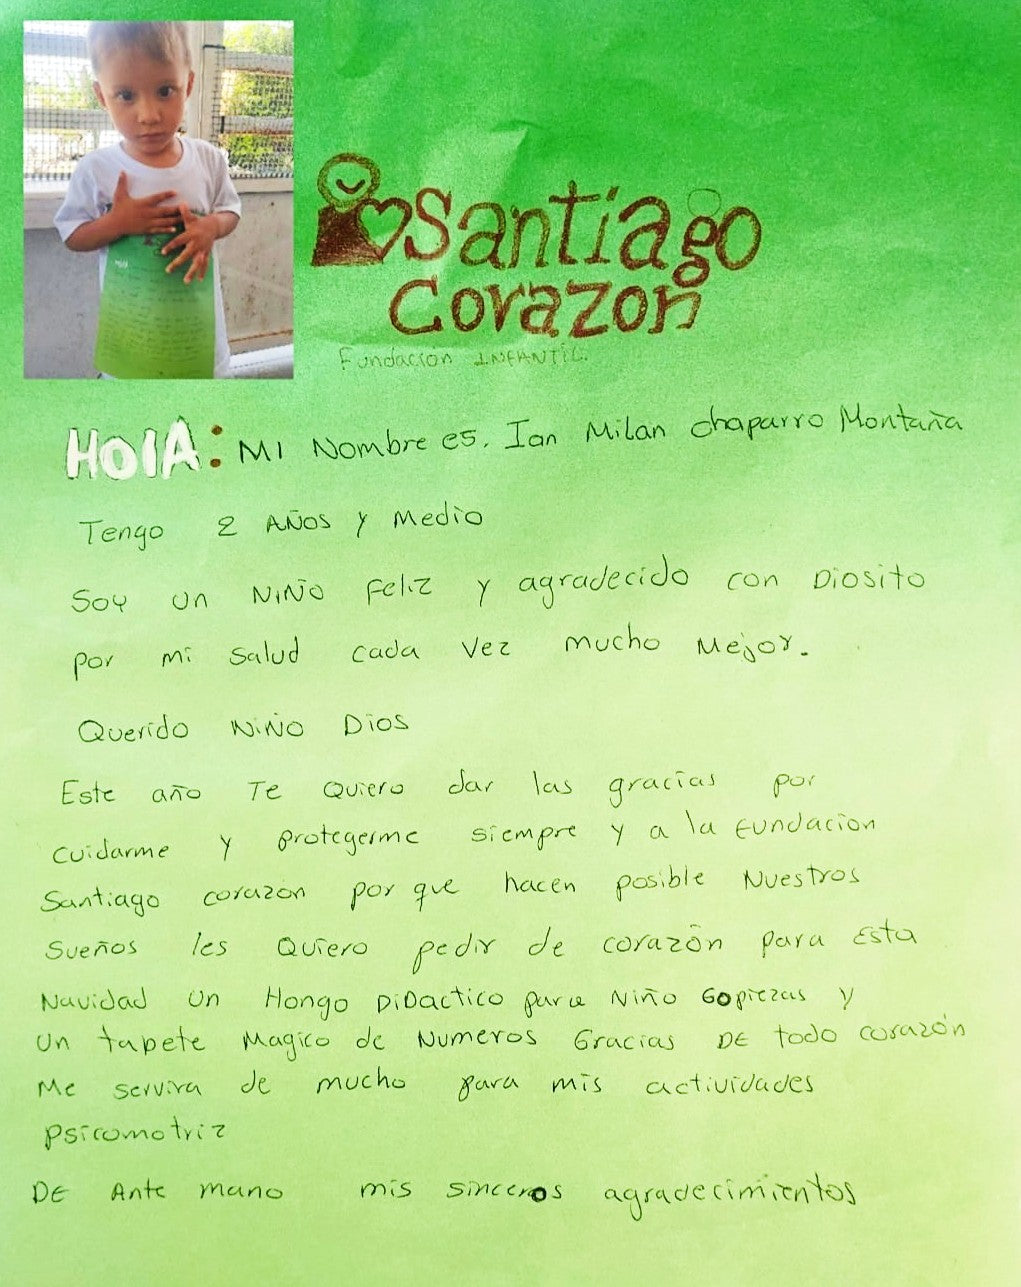 Santiago
Corazon
Fundacion INFANTIL.
HOlA: MI Nombre es. Ian Milan chaparro Montaña
Tengo 2 AÑOS y Medio
Soy un NIÑO Feliz y agradecido con Diosito
por mi salud cada vez mucho Mejor.
Querido NIÑO Dios
Este año Te Quiero dar las gracias por
cuidarme y protegerme siempre y a la Fundacion
Santiago corazon por que hacen posible Nuestros
Sueños les Quiero pedir de corazón para Esta
Navidad un Hongo DiDactico para Niño 60 piezas y
un tapete Magico de Numeros Gracias DE todo corazón
Me servira de mucho para mis actividades
psicomotriz
DE Ante mano mis sinceros agradecimientos